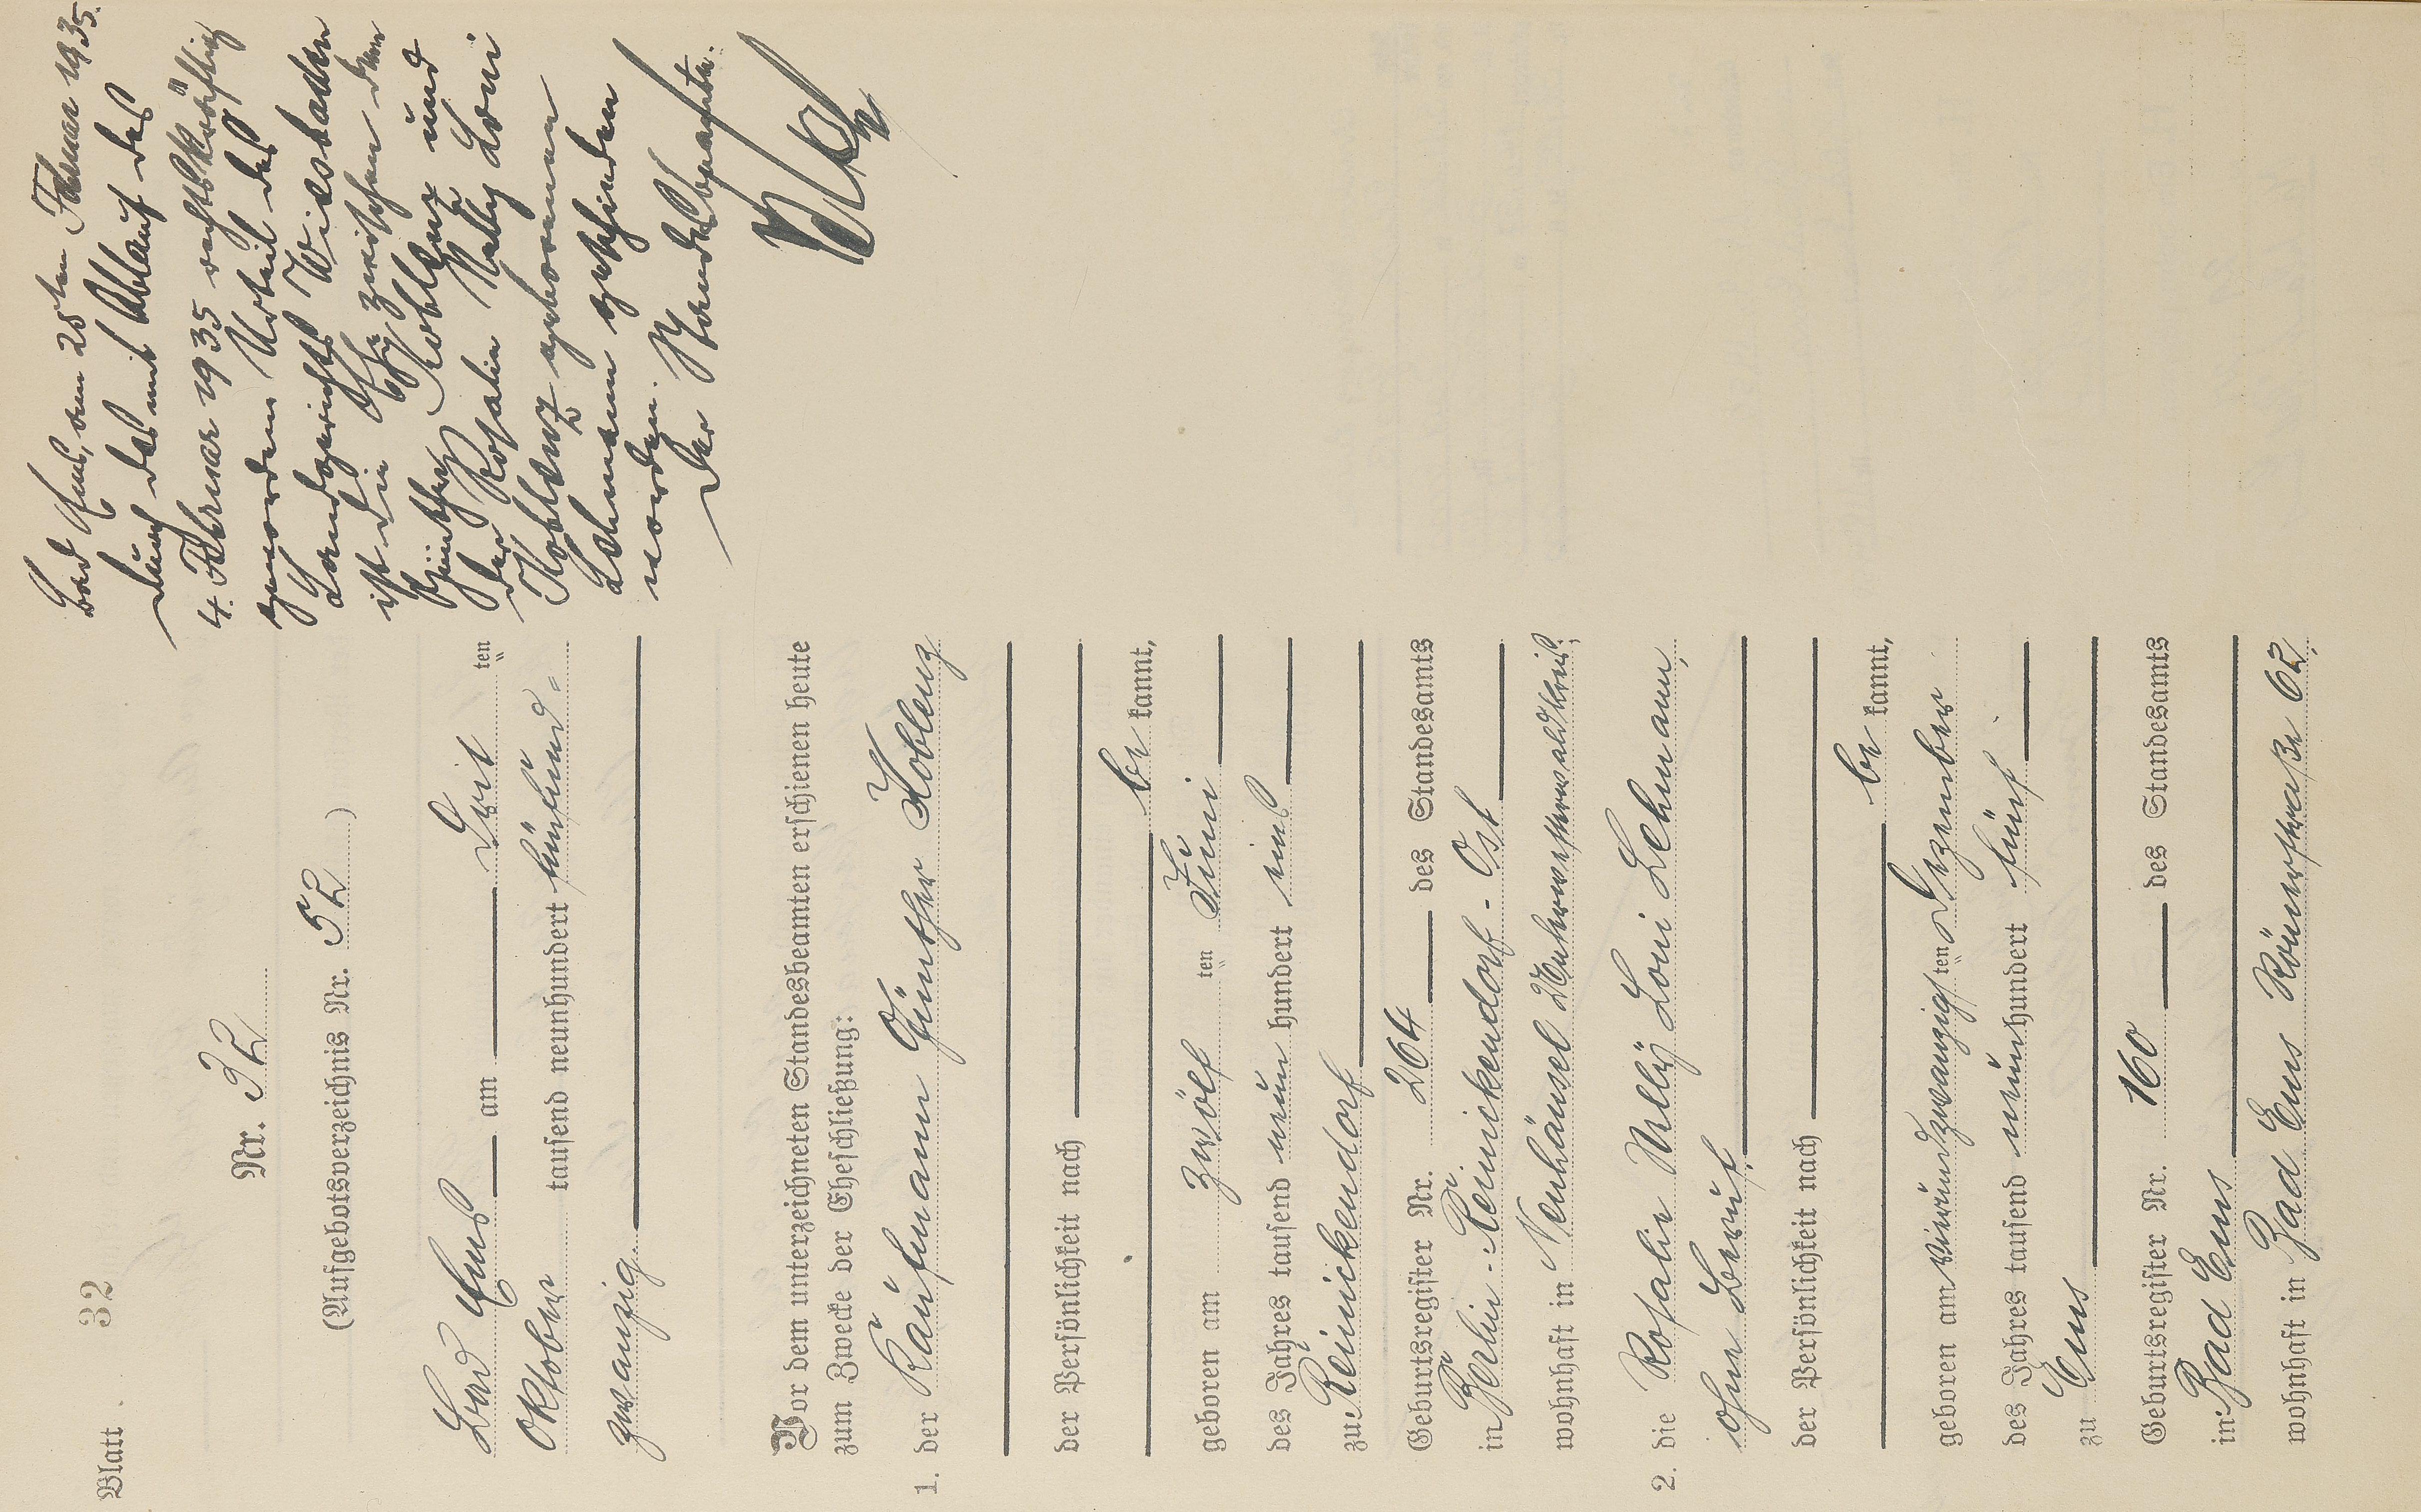 Blatt 32
Nr. 32
(Aufgebotsverzeichnis Nr. 52)
Bad Ems am Drit ten
Oktober tausend neunhundert fünfund-
zwanzig.
Vor dem unterzeichneten Standesbeamten erschienen heute
zum Zwecke der Eheschließung:
1. der Kaufmann Günther Koblenz
der Persönlichkeit nach
be kannt,
geboren am zwölf ten Juni
des Jahres tausend neun hundert eins
zu Reinickendorf
Geburtsregister Nr. 264 des Standesamts
in Berlin-Reinickendorf-Ost
wohnhaft in Neuhäusel Unterwesterwaldkreis;
2. die Rosalie Nelly Loni Lehmann,
ohne Beruf,
der Persönlichkeit nach
be kannt,
geboren am vierundzwanzigs ten Dezember
des Jahres tausend neunhundert fünf
zu Ems
Geburtsregister Nr. 160 des Standesamts
in Bad Ems
wohnhaft in Bad Ems Römerstraße 62,
Bad Ems, den 28ten Februar 1935.
Durch das mit Ablauf des
4. Februar 1935 rechtskräftig
gewordene Urteil des
Landgerichts Wiesbaden
ist die Ehe zwischen dem
Günther Koblenz und
der Rosalie Nelly Loni
Koblenz geborenen
Lehmann geschieden
worden.
Der Standesbeamte.